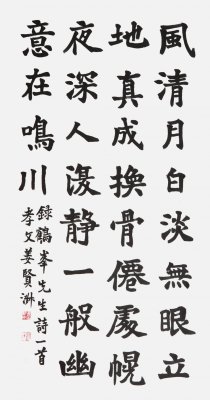 風清月白淡無眠立
地真成換骨僊虛幌
夜深人復靜一般幽
意在鳴川
錄鶴峯先生詩一首
孝文姜賢洲